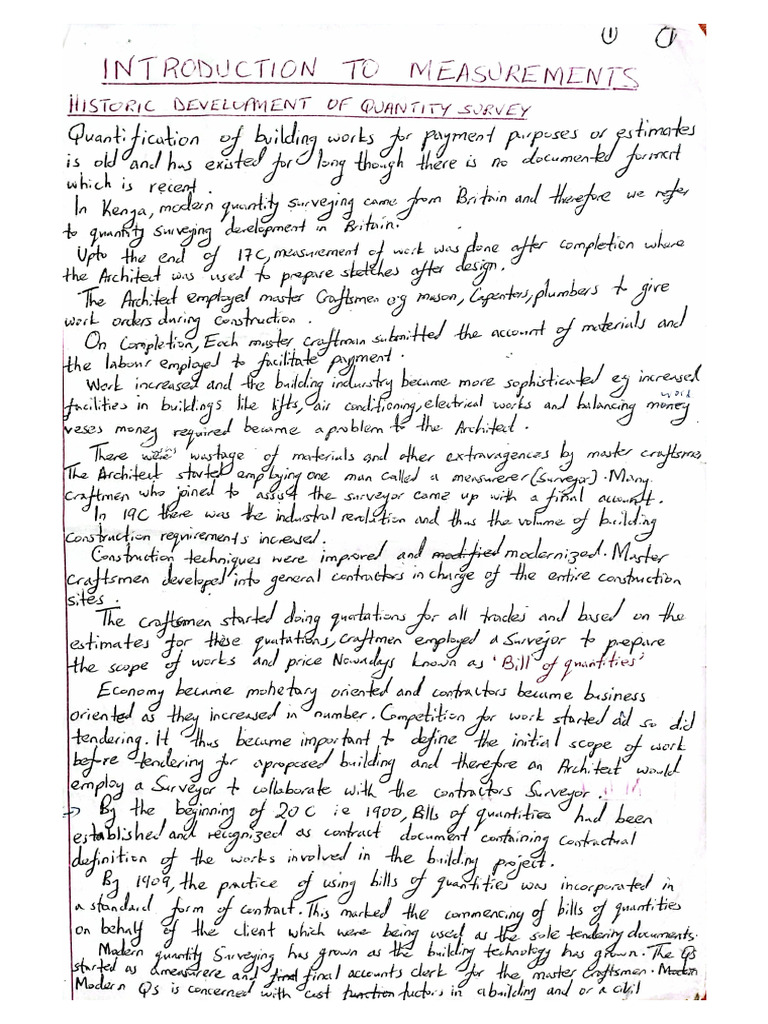 ① ①
INTRODUCTION TO MEASUREMENTS
HISTORIC DEVELOPMENT OF QUANTITY SURVEY
Quantification of building works for payment purposes or estimates
is old and has existed for long though there is no documented format
which is recent.
In Kenya, modern quantity surveying came from Britain and therefore we refer
to quantity surveying development in Britain.
Upto the end of 17C, measurement of work was done after completion where
the Architect was used to prepare sketches after design.
The Architect employed master Craftsmen e.g mason, Carpenters, plumbers to give
work orders during construction.
On Completion, Each master craftman submitted the account of materials and
the labour employed to facilitate payment.
Work increased and the building industry became more sophisticated eg increased
facilities in buildings like lifts, air conditioning, electrical works and balancing money
veses money required became a problem to the Architect.
There were wastage of materials and other extravagences by master craftsmen
The Architect started emplying one man called a measurerer (surveyor). Many
craftmen who joined to assist the surveyor came up with a final account.
In 19C there was the industrial revolution and thus the volume of building
construction requirements increased.
Construction techniques were improved and modified modernized. Master
craftsmen developed into general contractors in charge of the entire construction
sites.
The craftsmen started doing quotations for all trades and based on the
estimates for these quotations, craftmen employed a surveyor to prepare
the scope of works and price Nowadays known as 'Bill of quantities'
Economy became monetary oriented and contractors became business
oriented as they increased in number. Competition for work started ad so did
tendering. It thus became important to define the initial scope of work
before tendering for a proposed building and therefore an Architect would
employ a Surveyor to collaborate with the contractors Surveyor.
→ By the beginning of 20C ie 1900, Bills of quantities had been
established and recognized as contract document containing contractual
definition of the works involved in the building project.
By 1909, the practice of using bills of quantities was incorporated in
a standard form of contract. This marked the commencing of bills of quantities
on behalf of the client which were being used as the sole tendering documents.
Modern quantity Surveying has grown as the building technology has grown. The QS
started as a measurere and final final accounts clerk for the master craftsmen. Modern
Modern QS is concerned with cost function factors in a building and or a civil